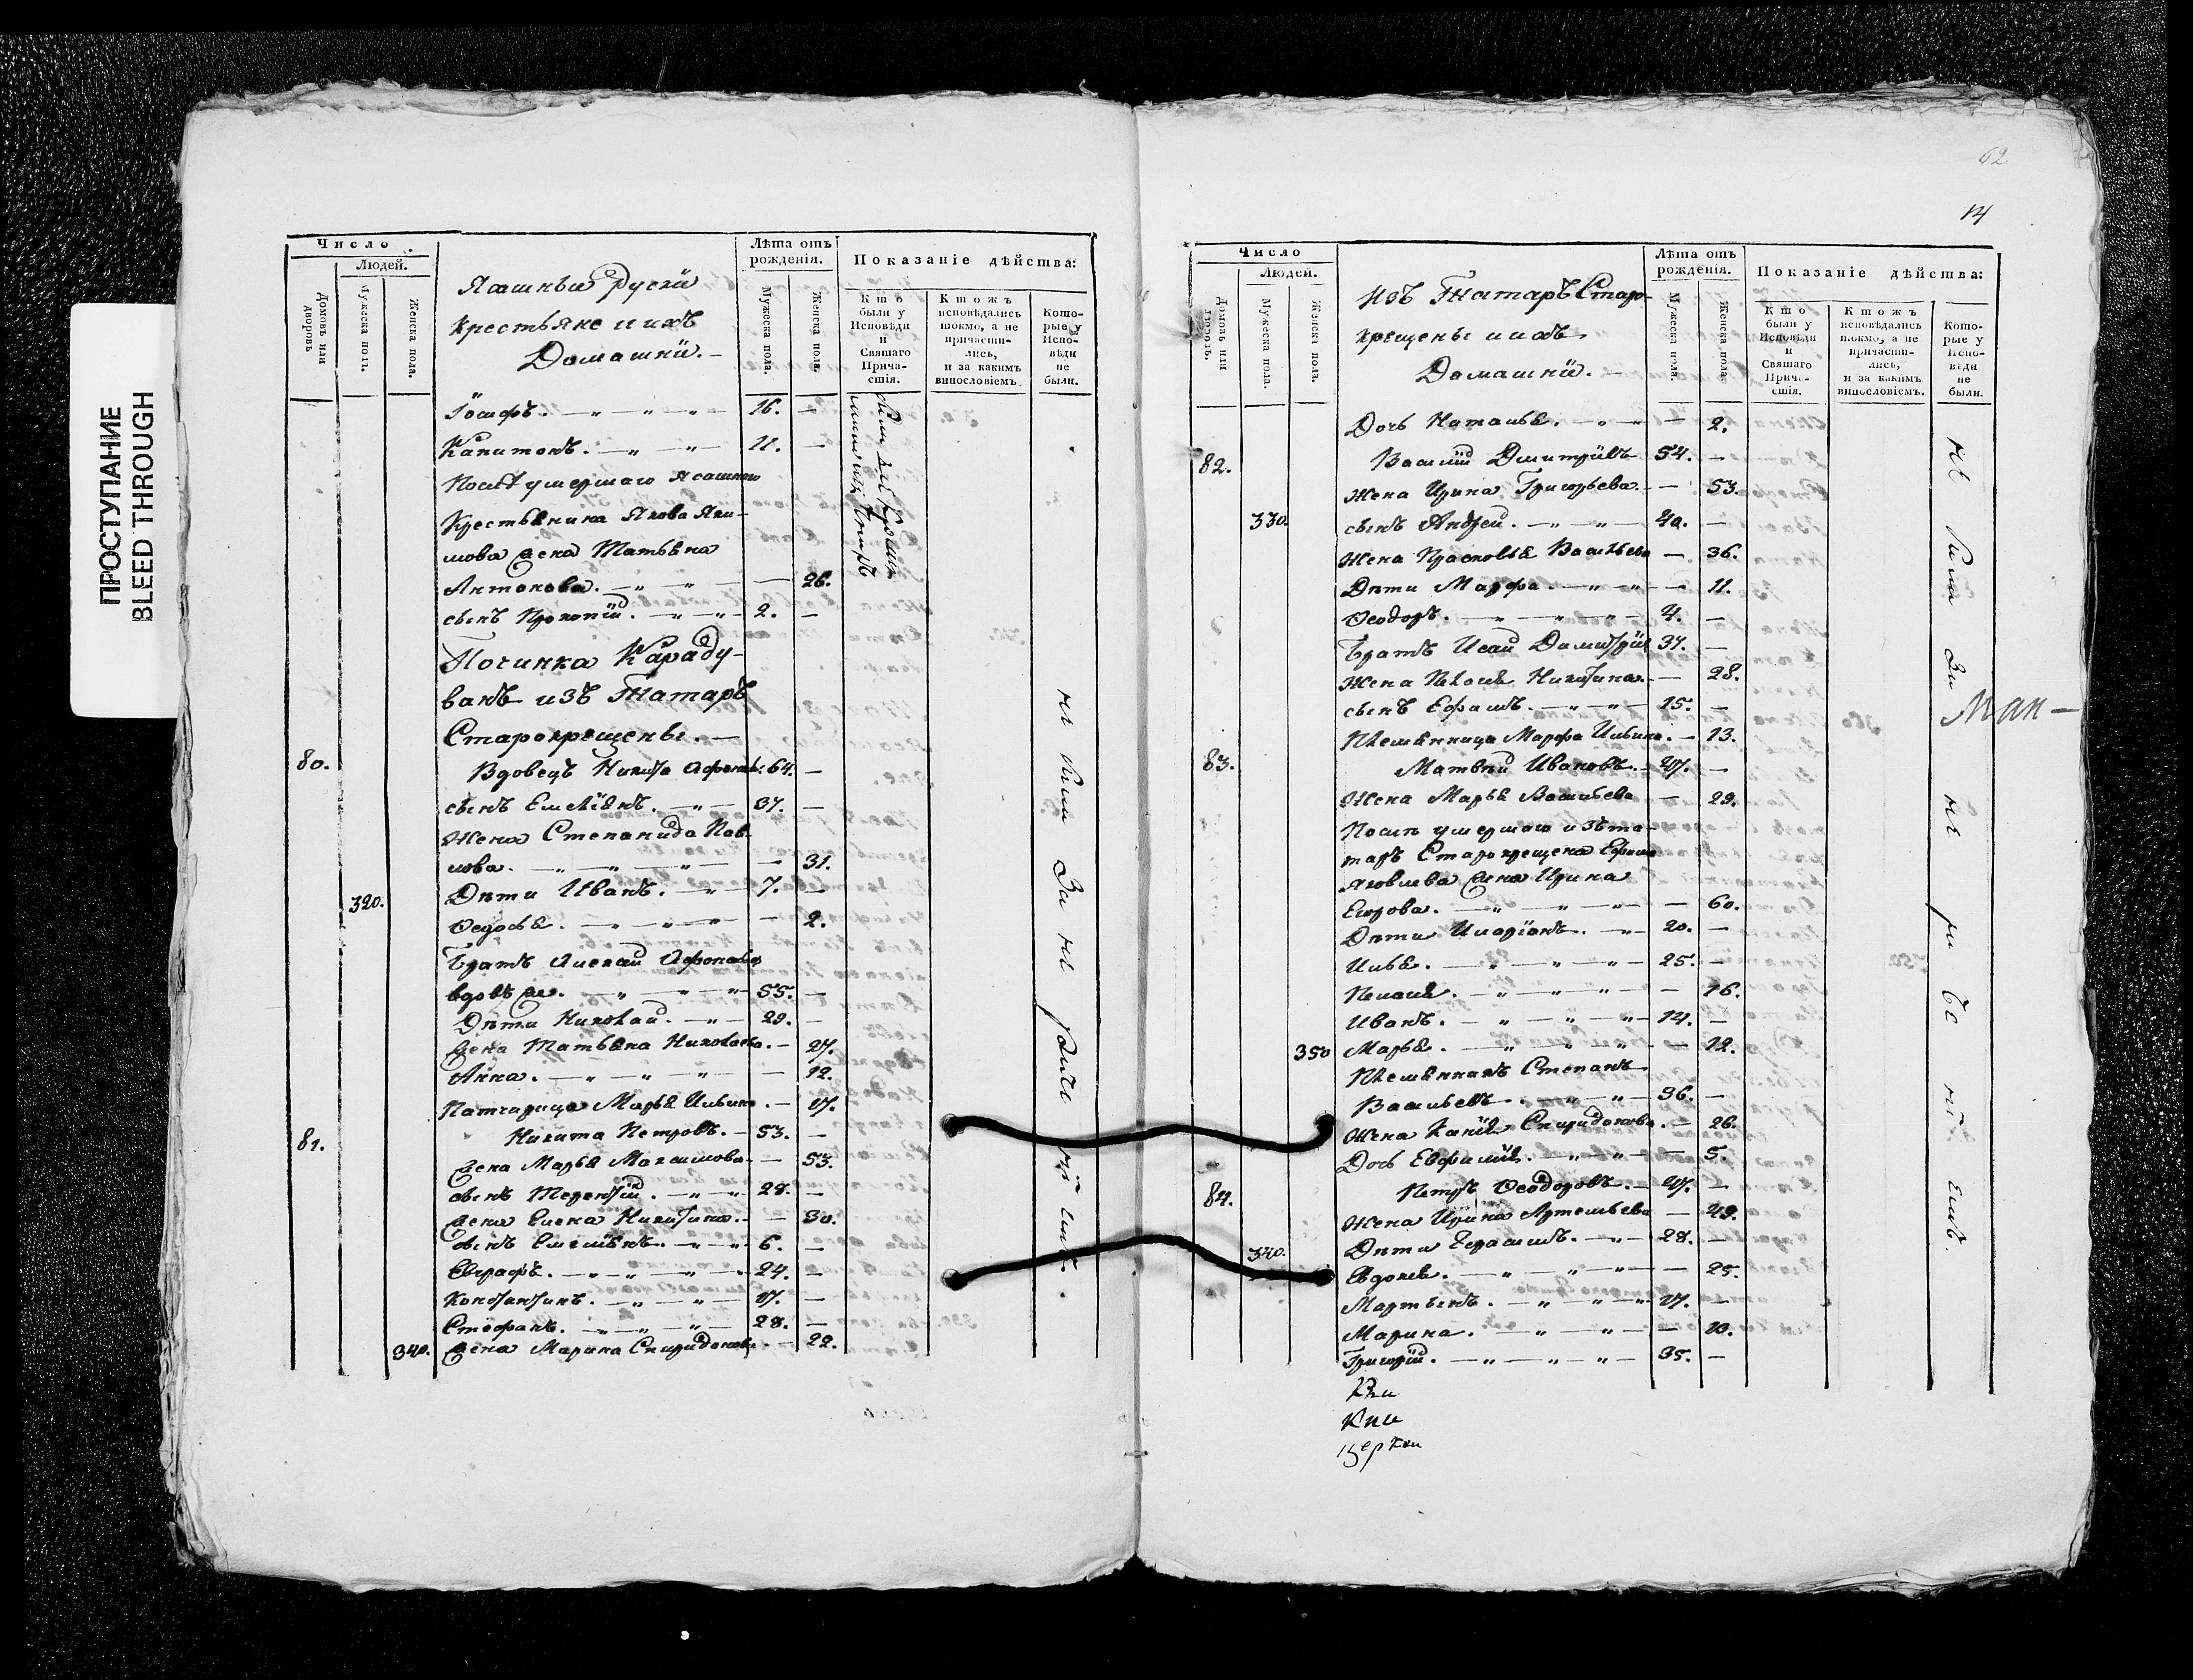 ПРОСТУПАНИЕ
BLEED THROUGH
Число
Людей.
Домовъ или дворовъ
Мужеска пола.
Женска пола.
Ясашныя Рускїи
крестьяне и ихъ
Домашнїи.
Лѣта отъ рожденїя.
Мужеска пола.
Женска пола.
Показанїе дѣйства:
Кто были у Исповѣди и Святаго Причастїя.
Ктожъ исповѣдались токмо, а не причастились, и за какимъ винословїемъ.
Которые у Исповѣди не были.
Їосифъ. 16. —
Капитонъ. 11. —
Послѣ умершаго Ясашнаго
Крестьянина Якова Яки-
мова жена Татьяна
Антонова. — 26.
сынъ Прокопїй. 2. —
Починка Караду-
ванъ изъ Татаръ
Старокрещены.
80. Вдовецъ Никита Афонас: 64. —
сынъ Емелїянъ. 37. —
Жена Степанида Пав-
лова. — 31.
320. Дѣти Иванъ. 7. —
Ѳедосья. — 2.
Братъ Алексѣй Афонасьев
вдовъ же. 55. —
Дѣти Николай. 29. —
жена Татьяна Николаева. — 27.
Анна. — 12.
Патчерица Марья Ильина. — 17.
81. Никита Петровъ. 53. —
жена Марья Максимова — 53.
сынъ Терентїй. 28. —
жена Елена Никитина. — 30.
сынъ Емелїянъ. 6. —
Евграфъ. 24. —
Константинъ. 17. —
Стефанъ. 28. —
340. жена Марина Спиридонова. — 22.
62
14
Число
Людей.
Домовъ или дворовъ.
Мужеска пола.
Женска пола.
Изъ Татаръ Старо-
крещены и ихъ
Домашнїи.
Лѣта отъ рожденїя.
Мужеска пола.
Женска пола.
Показанїе дѣйства:
Кто были у Исповѣди и Святаго Причастїя.
Ктожъ исповѣдались токмо, а не причастились, и за какимъ винословїемъ.
Которые у Исповѣди не были.
Дочь Наталья. — 2.
82. Василїй Дмитрїевъ 54. —
Жена Ирина Григорьева. — 53.
330 сынъ Андрей. 40. —
Жена Прасковья Васильева — 36.
Дѣти Марфа. — 11.
Ѳеодоръ. 4. —
Братъ Исай Димитрїев 37. —
Жена Пелагѣя Никитина. — 28.
сынъ Ефремъ. 15. —
Племянница Марфа Ильина. — 13.
83. Матвѣй Ивановъ. 47. —
Жена Марья Васильева — 29.
Послѣ умершаго изъ та-
таръ Старокрещена Ефима
Яковлева жена Ирина
Егорова. — 60.
Дѣти Иларїонъ. 20. —
Илья. 25. —
Пелагѣя. — 16.
Иванъ. 14. —
350 Марья. — 12.
Племянникъ Степанъ
Васильевъ. 36. —
Жена Спиридонова. — 26.
Дочь Евфимїя. — 5.
84. Петръ Ѳеодоровъ. 47. —
Жена Ирина Артемьева — 49.
340. Дѣти Герасимъ. 28. —
Евдокея. — 25.
Мартынъ. 17. —
Марина. — 10.
Григорїй. 35. —